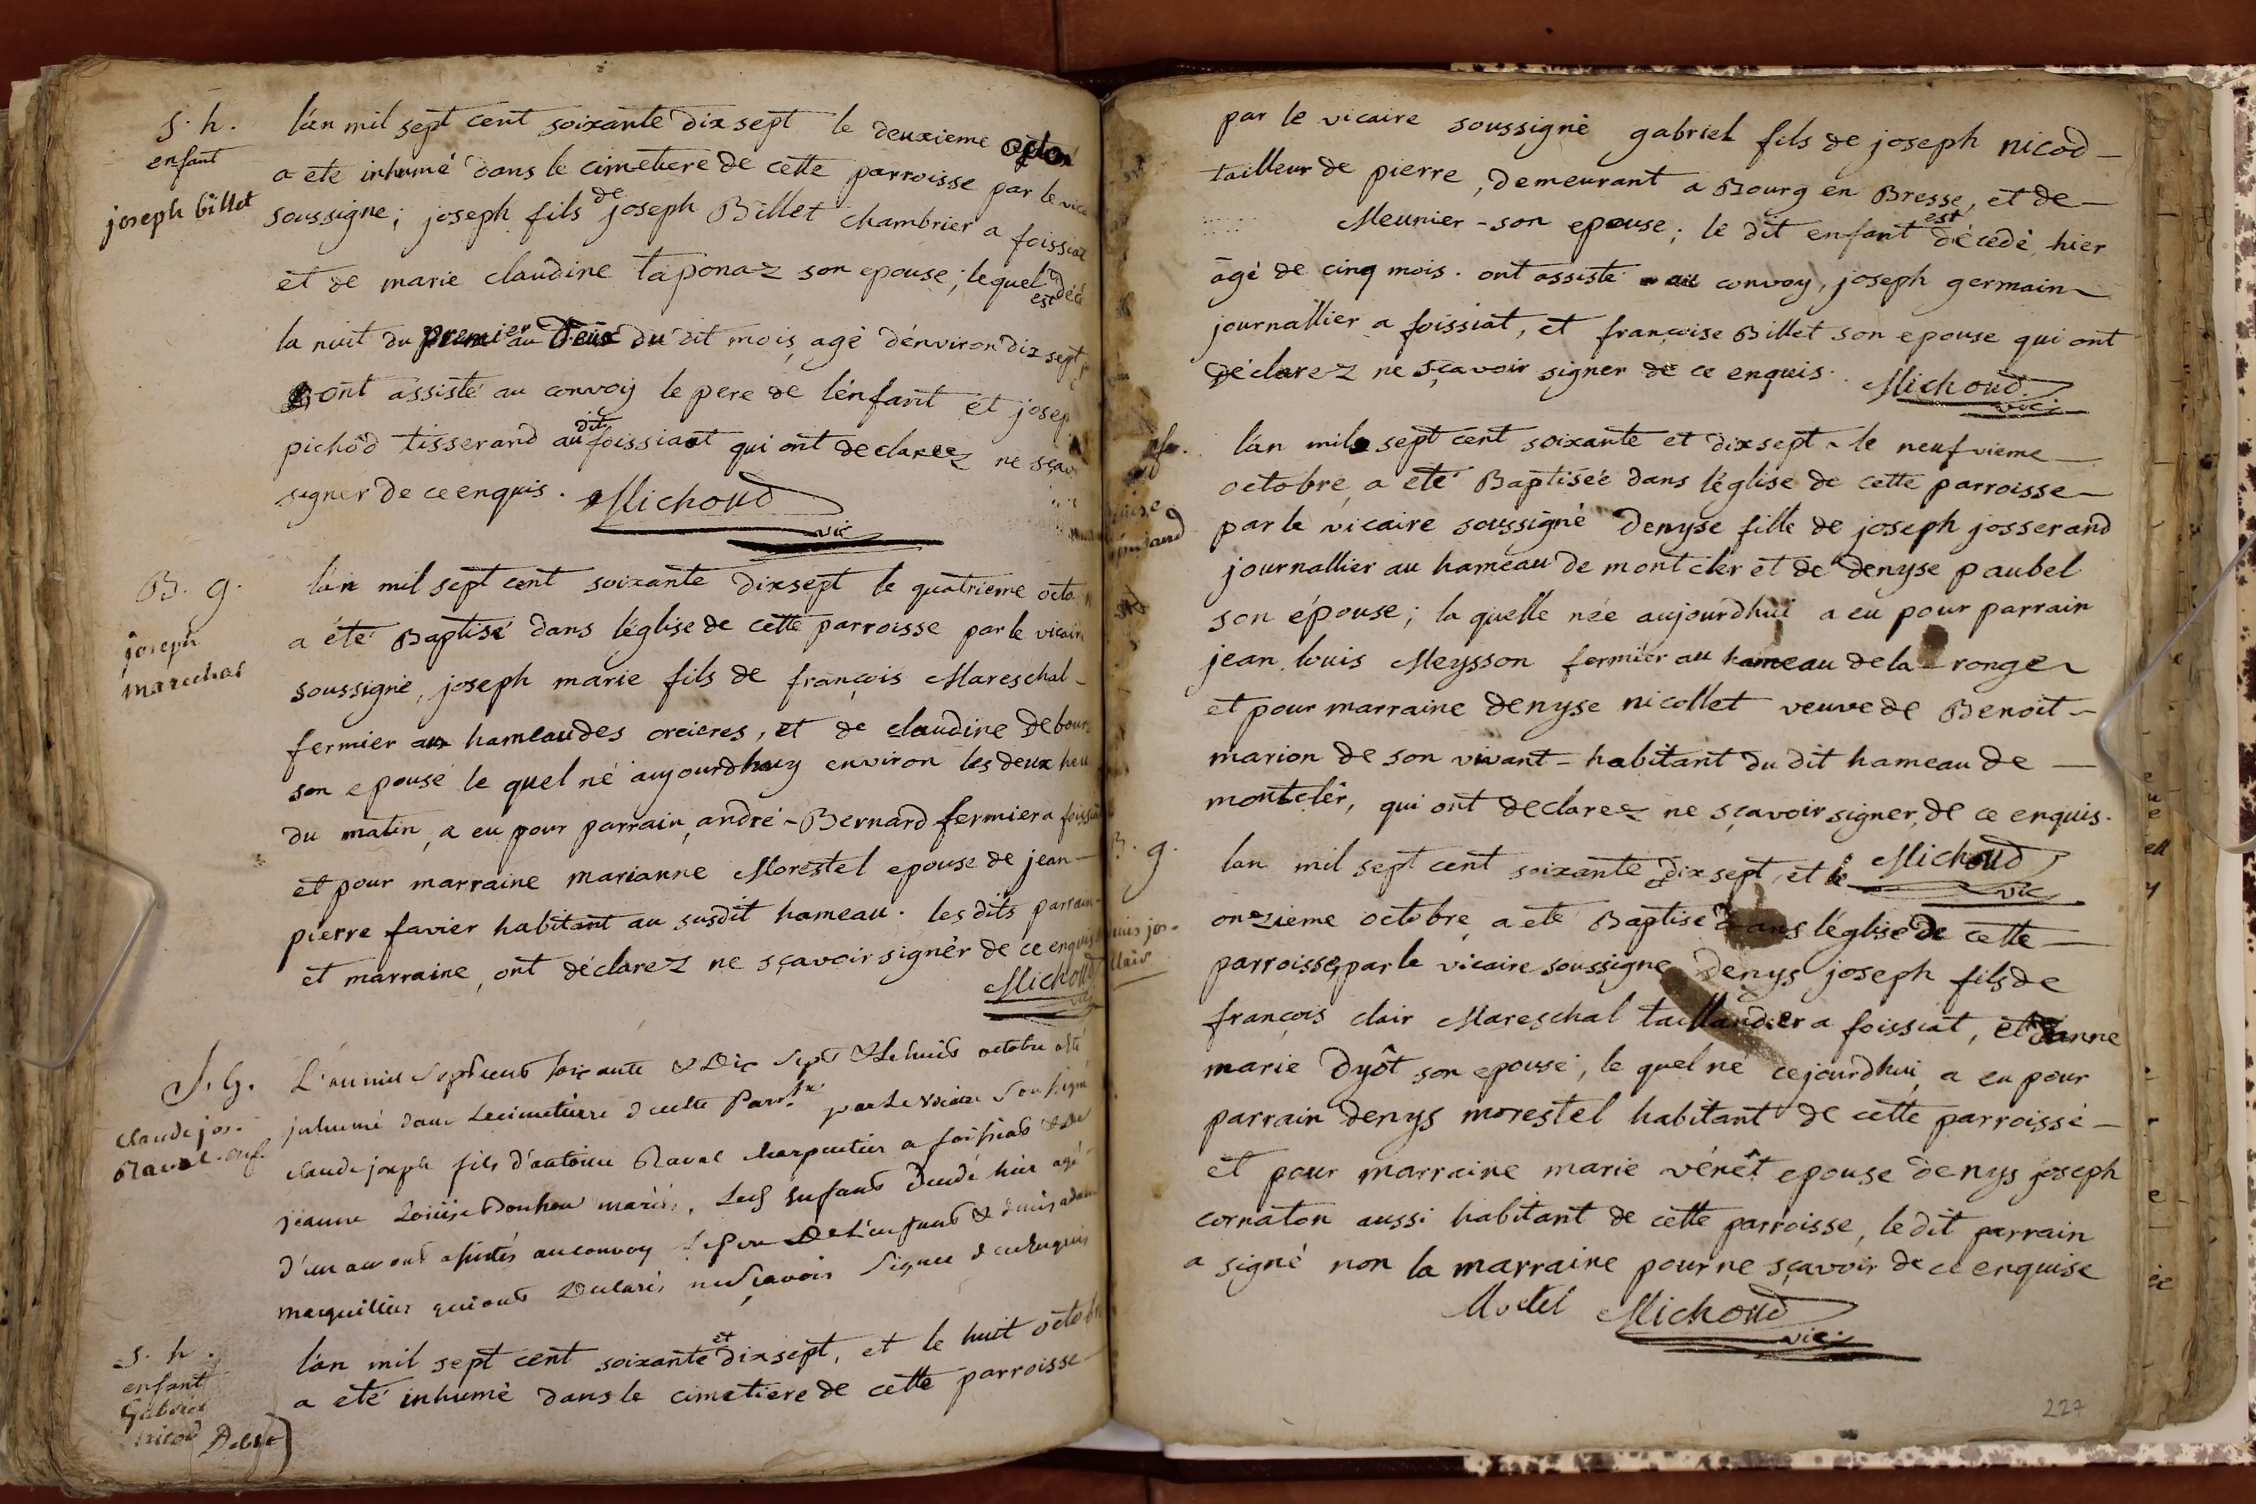 S. h.
enfant
joseph billet
l'an mil sept cent soixante dix sept le deuxieme
a ete inhumé dans le cimetiere de cette parroisse par le vic
soussigné; joseph fils de joseph Billet chambrier a foissiat
et de marie claudine taponaz son epouse; lequel est décé
la nuit du premier au deux du dit mois, agé d'environ dix sept
ont assisté au convoy le pere de l'enfant et josep
pichod tisserand au dit foissiaot qui ont declarez ne sçav
signer de ce enquis. Michoud
vic
B. g.
joseph
marechal
l'an mil sept cent soixante dix sept le quatrieme octo
a été Baptisé dans l'église de cette parroisse par le vicair
soussigné, joseph marie fils de françois Mareschal -
fermier au hameau des orcieres, et de claudine Debour
son epouse le quel né aujourdhuy environ les deux heu
du matin, a eu pour parrain, andré - Bernard fermier a foissia
et pour marraine marianne Morestel epouse de jean -
pierre favier habitant au susdit hameau. les dits parrain
et marraine, ont déclarez ne sçavoir signér de ce enquis
Michoud
vic
J. h.
Claude jos.
Raval. enf.
L'an mil sept cent soixante & Dix sept & le huit octobre a été
inhumé dans le cimetiere de cette Parr.se par le vicaire soussigné
claude joseph fils d'antoine Raval charpentier a foissiat & de
jeanne Loüise mariés, Led enfant decedé hier agé
d'un an ont assistés au convoy le pere De L'enfant & denis adam
marguillier qui ont Declarés ne sçavoir signer de ce enquis
S. h.
enfant
Gabriel
nicod
l'an mil sept cent soixante et dix sept, et le huit octob
a été inhumé dans le cimetiere de cette parroisse
par le vicaire soussigné gabriel fils de joseph nicod -
tailleur de pierre, demeurant a Bourg en Bresse, et de -
Meunier - son epouse; le dit enfant est décedé hier
âgé de cinq mois. ont assisté au convoy, joseph germain
journallier a foissiat, et françoise Billet son epouse qui ont
déclarez ne sçavoir signer de ce enquis. Michoud
vic.
l'an mil sept cent soixante et dix sept - le neufvieme -
octobre, a été Baptisée dans l'église de cette parroisse -
par le vicaire soussigné denyse fille de joseph josserand
journallier au hameau de montcler et de denyse paubel
son épouse; la quelle née aujourdhui a eu pour parrain
jean louis Meysson fermier au hameau de la - ronge
et pour marraine denyse nicollet veuve de Benoit -
marion de son vivant - habitant du dit hameau de -
montclér, qui ont declarez ne sçavoir signer, de ce enquis.
Michoud
vic
B. g.
lan mil sept cent soixante dix sept, et le
onzieme octobre, a ete Baptisé dans l'église de cette -
parroisse, par le vicaire soussigné denys joseph fils de
françois clair Mareschal taillandier a foissiat, et d'anne
marie dyôt son epouse, le quel né cejourdhui a eu pour
parrain denys morestel habitant de cette parroisse -
et pour marraine marie vérnêt epouse denys joseph
cornaton aussi habitant de cette parroisse, le dit parrain
a signé non la marraine pour ne sçavoir de ce enquise
Michoud
vic.
227